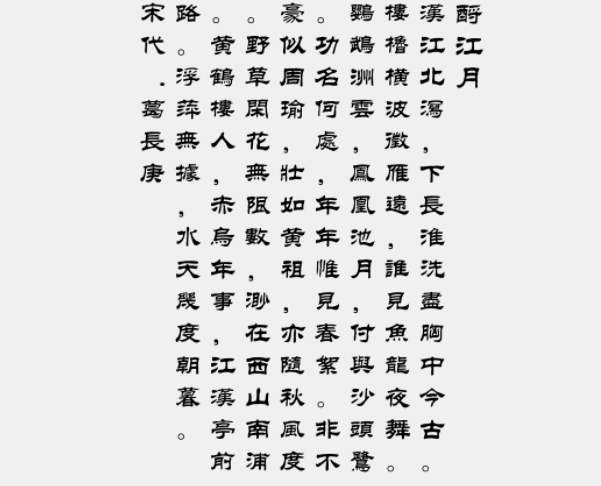 酹江月
漢江北瀉，下長淮洗盡胸中今古。
樓櫓橫波徵雁遠，誰見魚龍夜舞。
鸚鵡洲雲，鳳凰池月，付與沙頭鷺
。功名何處，年年惟見春絮。非不
豪似周瑜，壯如黃祖，亦隨秋風度
。野草閑花無限數，渺在西山南浦
。黃鶴樓人，赤烏年事，江漢亭前
路。浮萍無據，水天幾度朝暮。
宋代．葛長庚